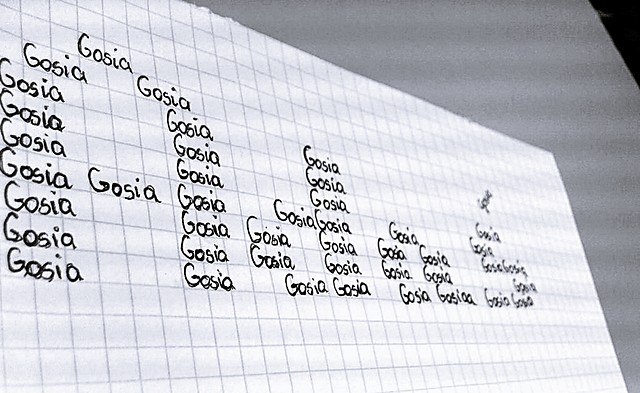 Gosia
Gosia Gosia
Gosia Gosia Gosia
Gosia Gosia Gosia
Gosia Gosia Gosia Gosia
Gosia Gosia Gosia Gosia Gosia Gosia Gosia
Gosia Gosia Gosia Gosia Gosia Gosia Gosia Gosia
Gosia Gosia Gosia Gosia Gosia Gosia Gosia
Gosia Gosia Gosia Gosia Gosia Gosiaa Gosia Gosia